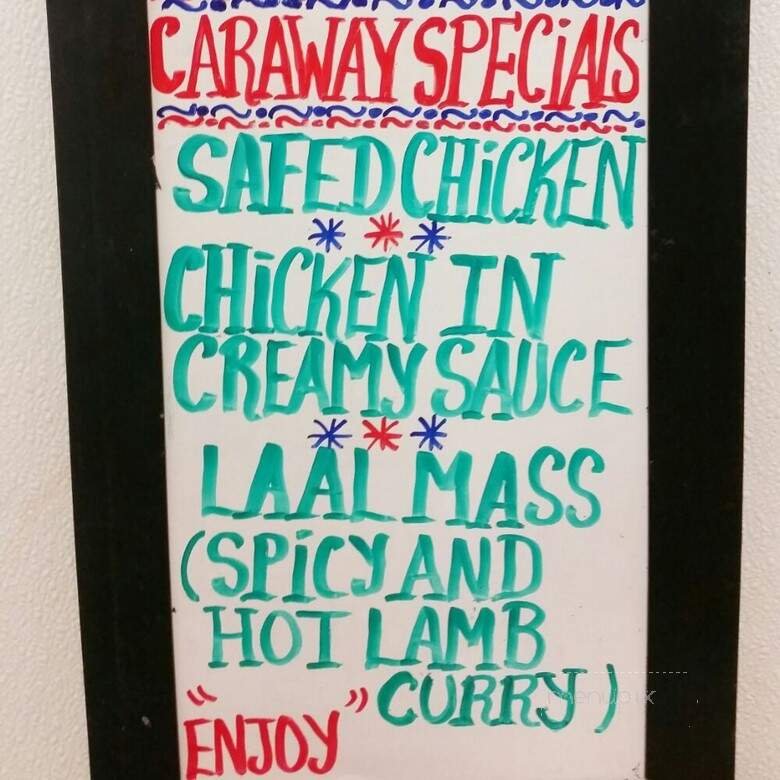 CARAWAY SPECiAlS
SAFED CHiCKEN
CHiCKEN IN
CREAMY SAUCE
LAAL MASS
(SPiCY AND
HOT LAMB
CURRY)
"ENJOY"
menupix